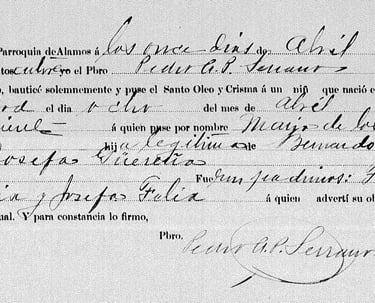 Parroquia de Alamos á los once dias de Abril
tos catorce yo el Pbro Pedro A. P. Serrano
, bauticé solemnemente y puse el Santo Oleo y Crisma á un niñ que nació e
el dia ocho del mes de Abril
á quien puse por nombre Maria de los
hija legitima de Bernardo
Josefa
Fueron padrinos: F
y Josefa Felix á quien advertí su ob
ual. Y para constancia lo firmo,
Pbro.
Pedro A. P. Serrano